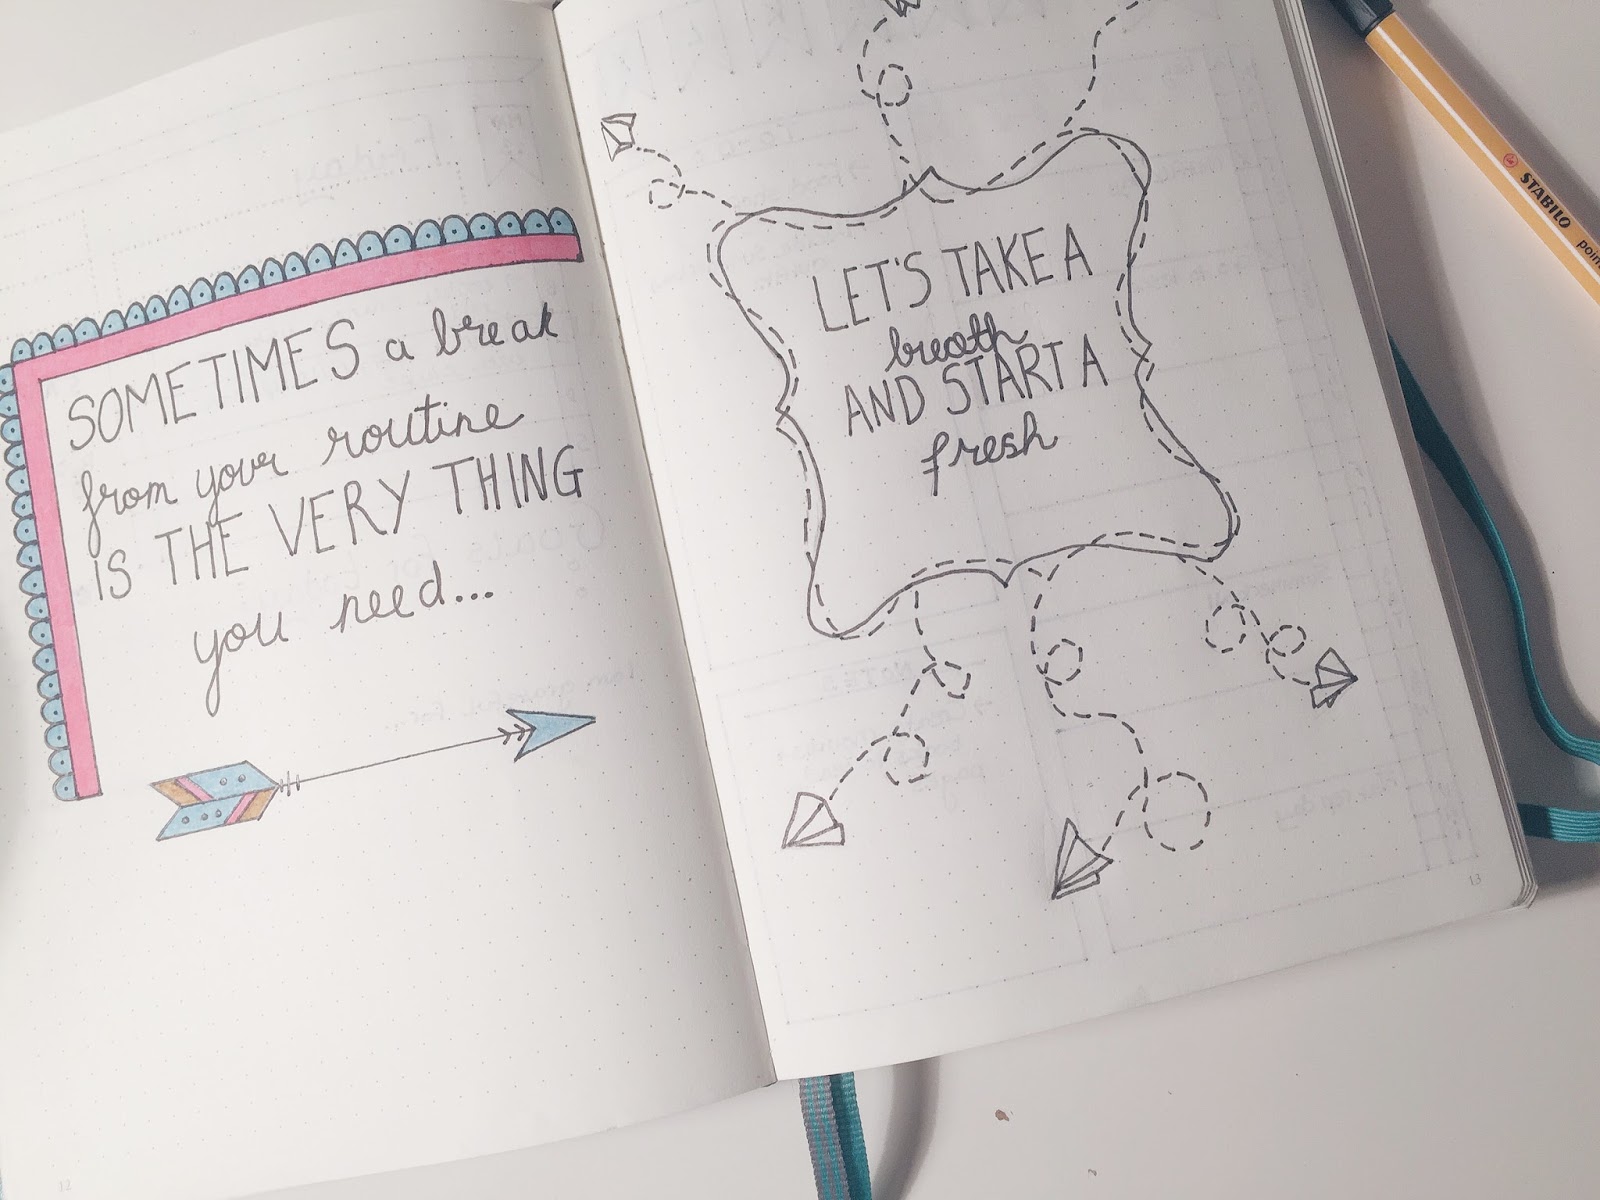 SOMETIMES a break
from your routine
IS THE VERY THING
you need...
12
LET'S TAKE A
breath
AND START A
fresh
13
STABILO
point
Friday
NOTES